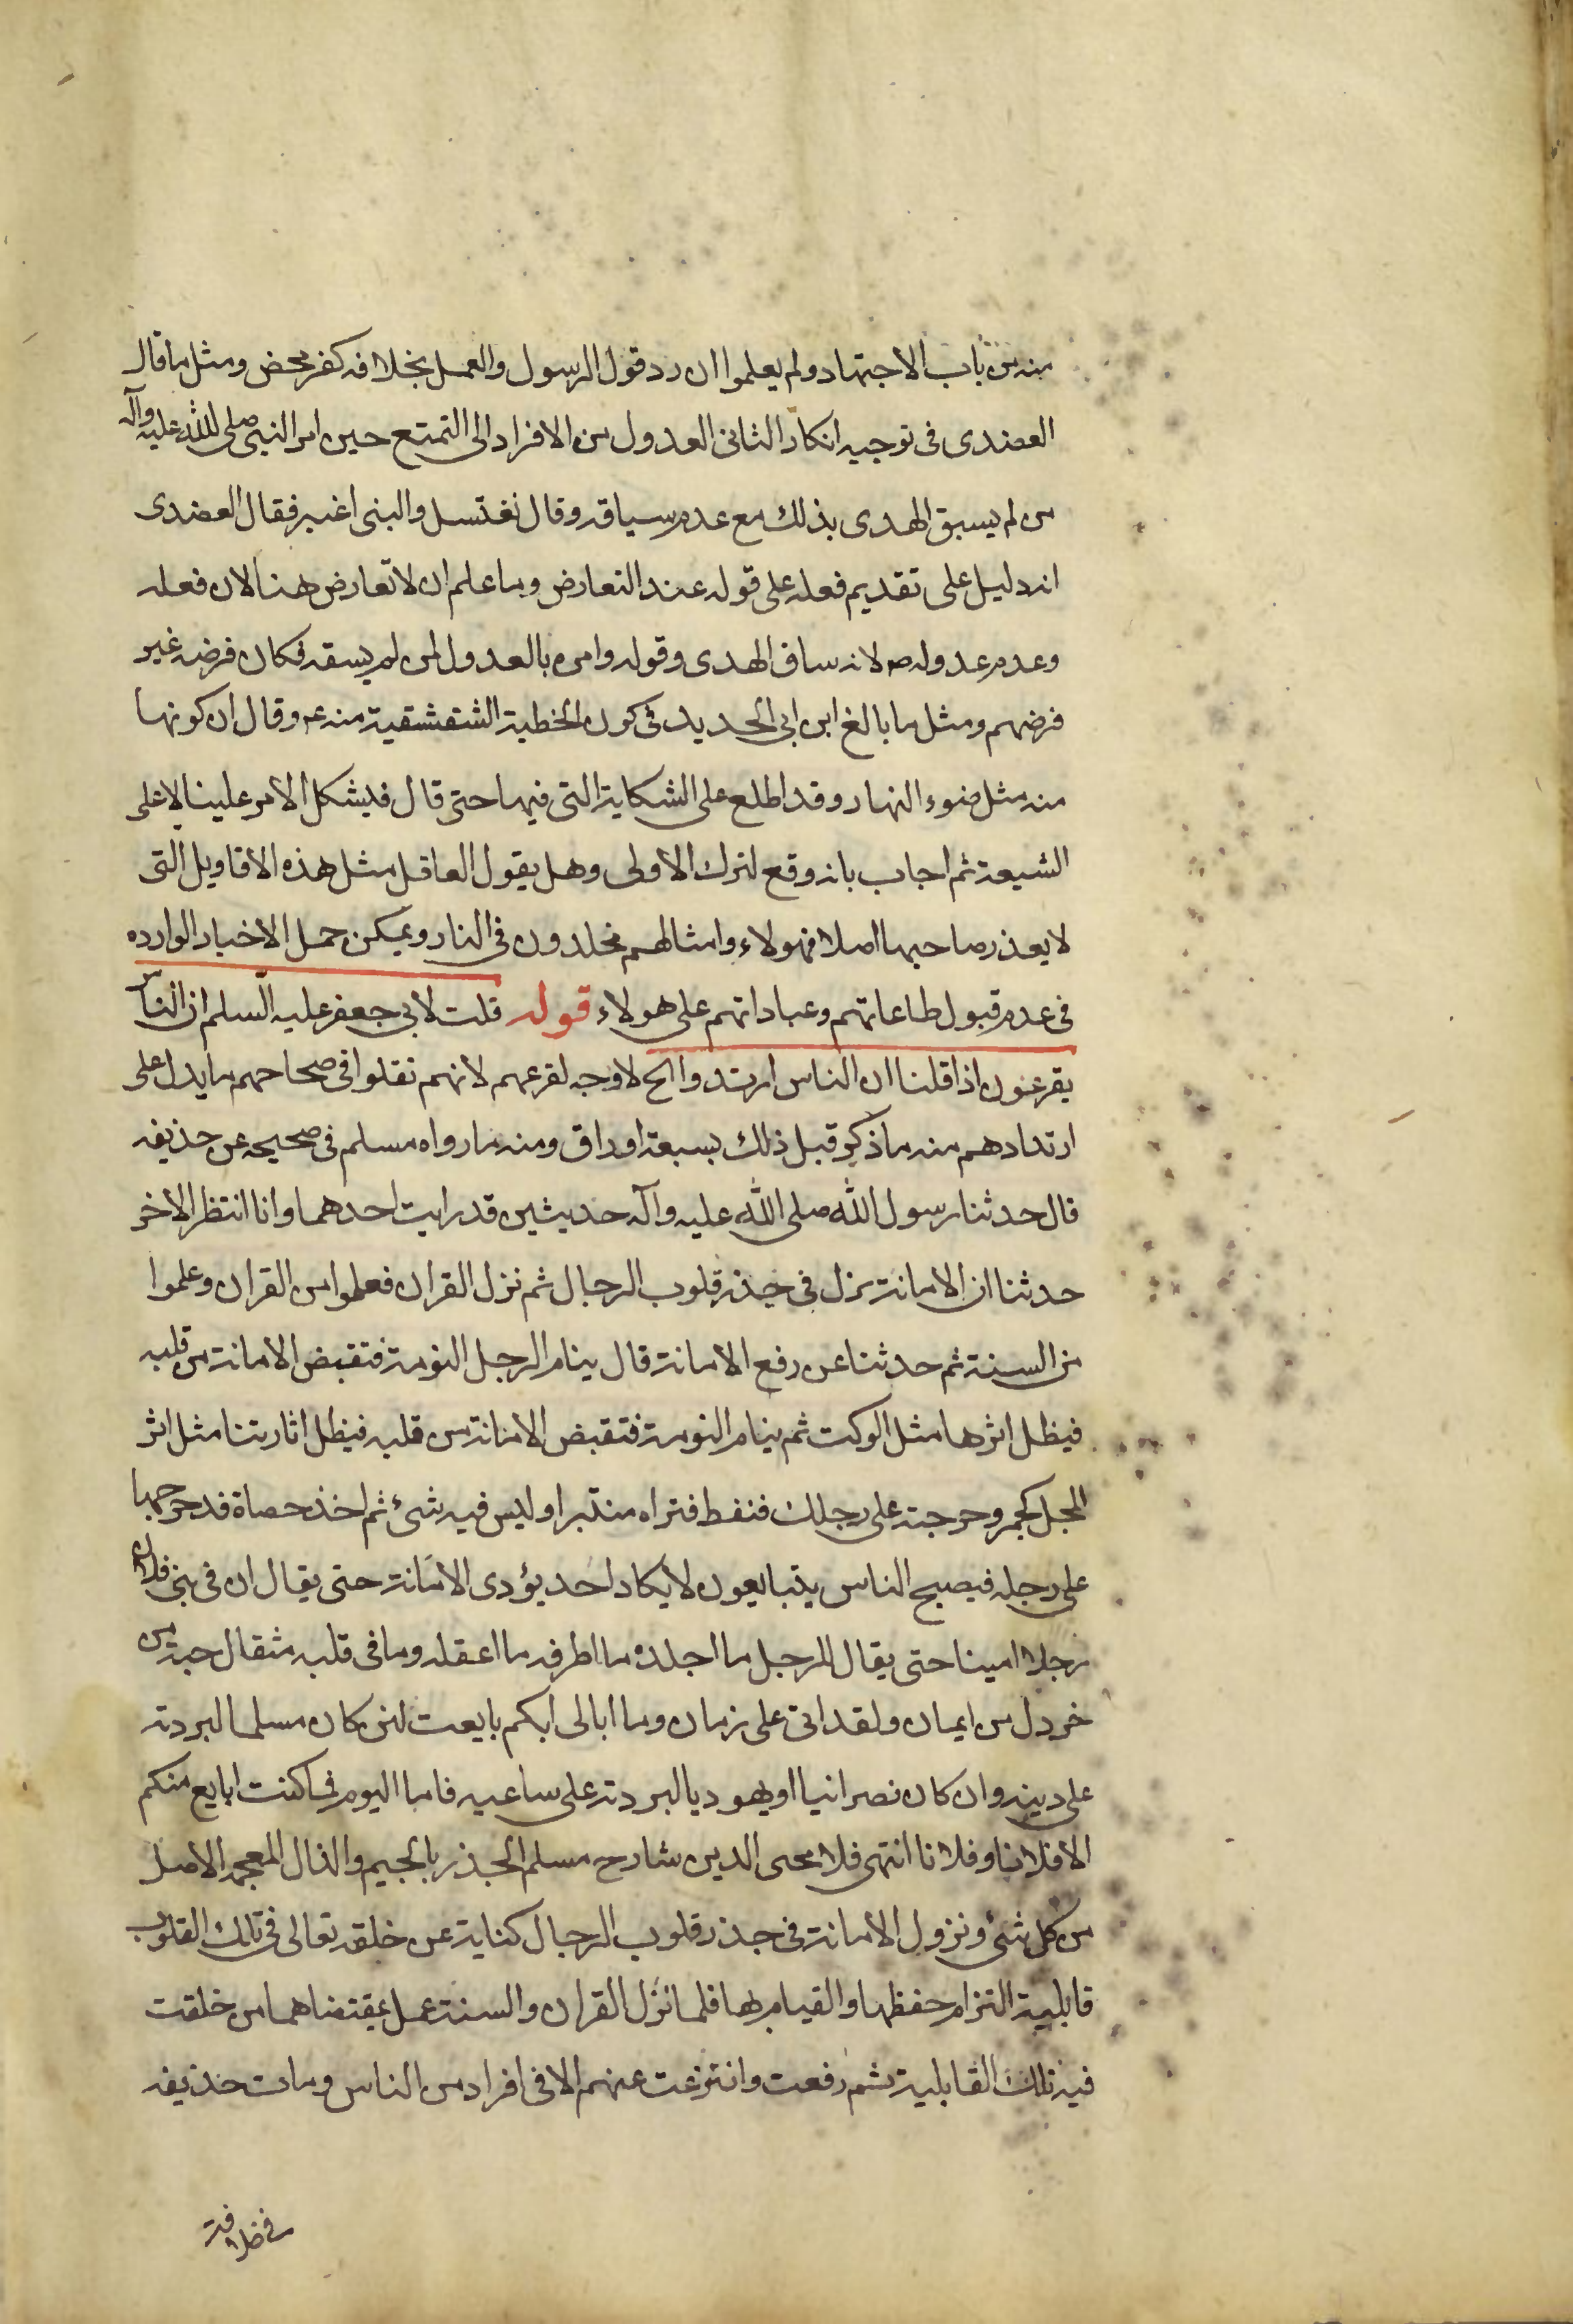 منه من باب الاجتهاد ولم يعلموا ان رد قول الرسول والعمل بخلافه كفر محض ومثل ما قال
العضدى فى توجيه انكار الثانى العدول من الافراد الى التمتع حين امر النبى صلى الله عليه وآله
من لم يسبق الهدى بذلك مع عدم سياقه وقال نغتسل والنبى اغبر فقال العضدى
انه دليل على تقديم فعله على قوله عند التعارض وما علم ان لا تعارض هنا لان فعله
وعدم عدوله ص لانه ساق الهدى وقوله وامره بالعدول لمن لم يسقه فكان فرضه غير
فرضهم ومثل ما بالغ ابن ابى الحديد فى كون الخطبة الشقشقية منه ع م وقال ان كونها
منه مثل ضوء النهار وقد اطلع على الشكاية التى فيها حتى قال فيشكل الامر علينا لا على
الشيعة ثم اجاب بانه وقع لترك الاولى وهل يقول العاقل مثل هذه الاقاويل التى
لا يعذر صاحبها اصلا فهولاء وامثالهم مخلدون فى النار ويمكن حمل الاخبار الوارده
فى عدم قبول طاعاتهم وعباداتهم على هولاء قوله قلت لابى جعفر عليه السلم ان الناس
يقرعون اذا قلنا ان الناس ارتدوا الح لا وجه لقرعهم لانهم نقلوا فى صحاحهم ما يدل على
ارتدادهم منه ما ذكر قبل ذلك بسبعة اوراق ومنه ما رواه مسلم فى صحيحه عن حذيفه
قال حدثنا رسول الله صلى الله عليه وآله حديثين قد رايت احدهما وانا انتظر الاخر
حدثنا ان الامانة نزل فى جذر قلوب الرجال ثم نزل القران فعلموا من القران وعلموا
من السنة ثم حدثنا عن رفع الامانة قال ينام الرجل النومة فتقبض الامانة من قلبه
فيظل اثرها مثل الوكت ثم ينام النومة فتقبض الامانة من قلبه فيظل اثارتنا مثل اثر
المجل كجمر وحرجته على رجلك فنفط فتراه منتبرا وليس فيه شئ ثم اخذ حصاة فدحرجها
على رجله فيصبح الناس يتبايعون لا يكاد احد يؤدى الامانة حتى يقال ان فى بنى فلان
رجلا امينا حتى يقال للرجل ما اجلده ما اظرفه ما اعقله وما فى قلبه مثقال حبة من
خردل من ايمان ولقد اتى على زمان وما ابالى ايكم بايعت لئن كان مسلما ليردنه
على دينه وان كان نصرانيا او يهوديا ليردنه على ساعيه فاما اليوم فما كنت ابايع منكم
الا فلانا وفلانا انتهى فلا محى الدين شارح مسلم الجذر بالجيم والذال المعجمه الاصل
من كل شئ ونزول الامانة فى جذر قلوب الرجال كناية عن خلقه تعالى فى تلك القلوب
قابلية التزام حفظها والقيام بها فلما نزل القران والسنة عمل بمقتضاهما من خلقت
فيه تلك القابلية ثم رفعت وانتزعت عنهم الا فى افراد من الناس ومات حذيفه
فى خلافة